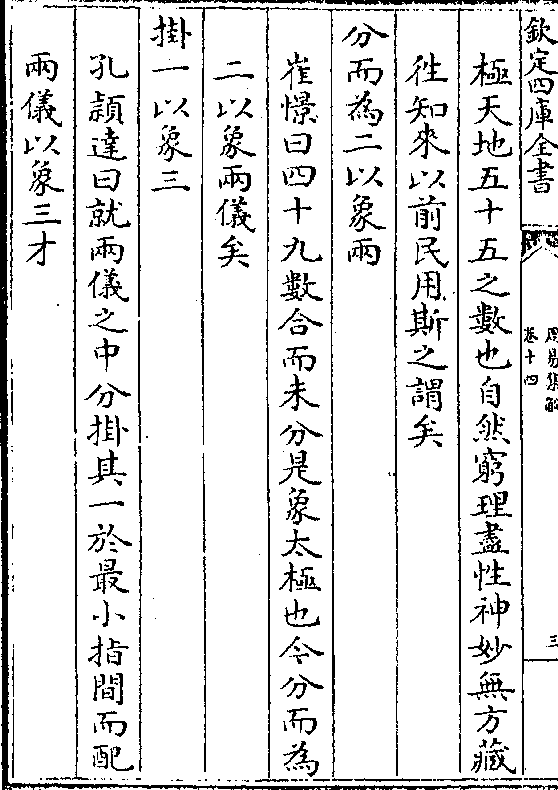 欽定四庫全書
周易集解
卷十四
三
極天地五十五之數也自然窮理盡性神妙無方藏
徃知來以前民用斯之謂矣
分而為二以象兩
崔憬曰四十九數合而未分是象太極也今分而為
二以象兩儀矣
掛一以象三
孔頴達曰就兩儀之中分掛其一於最小指間而配
兩儀以象三才